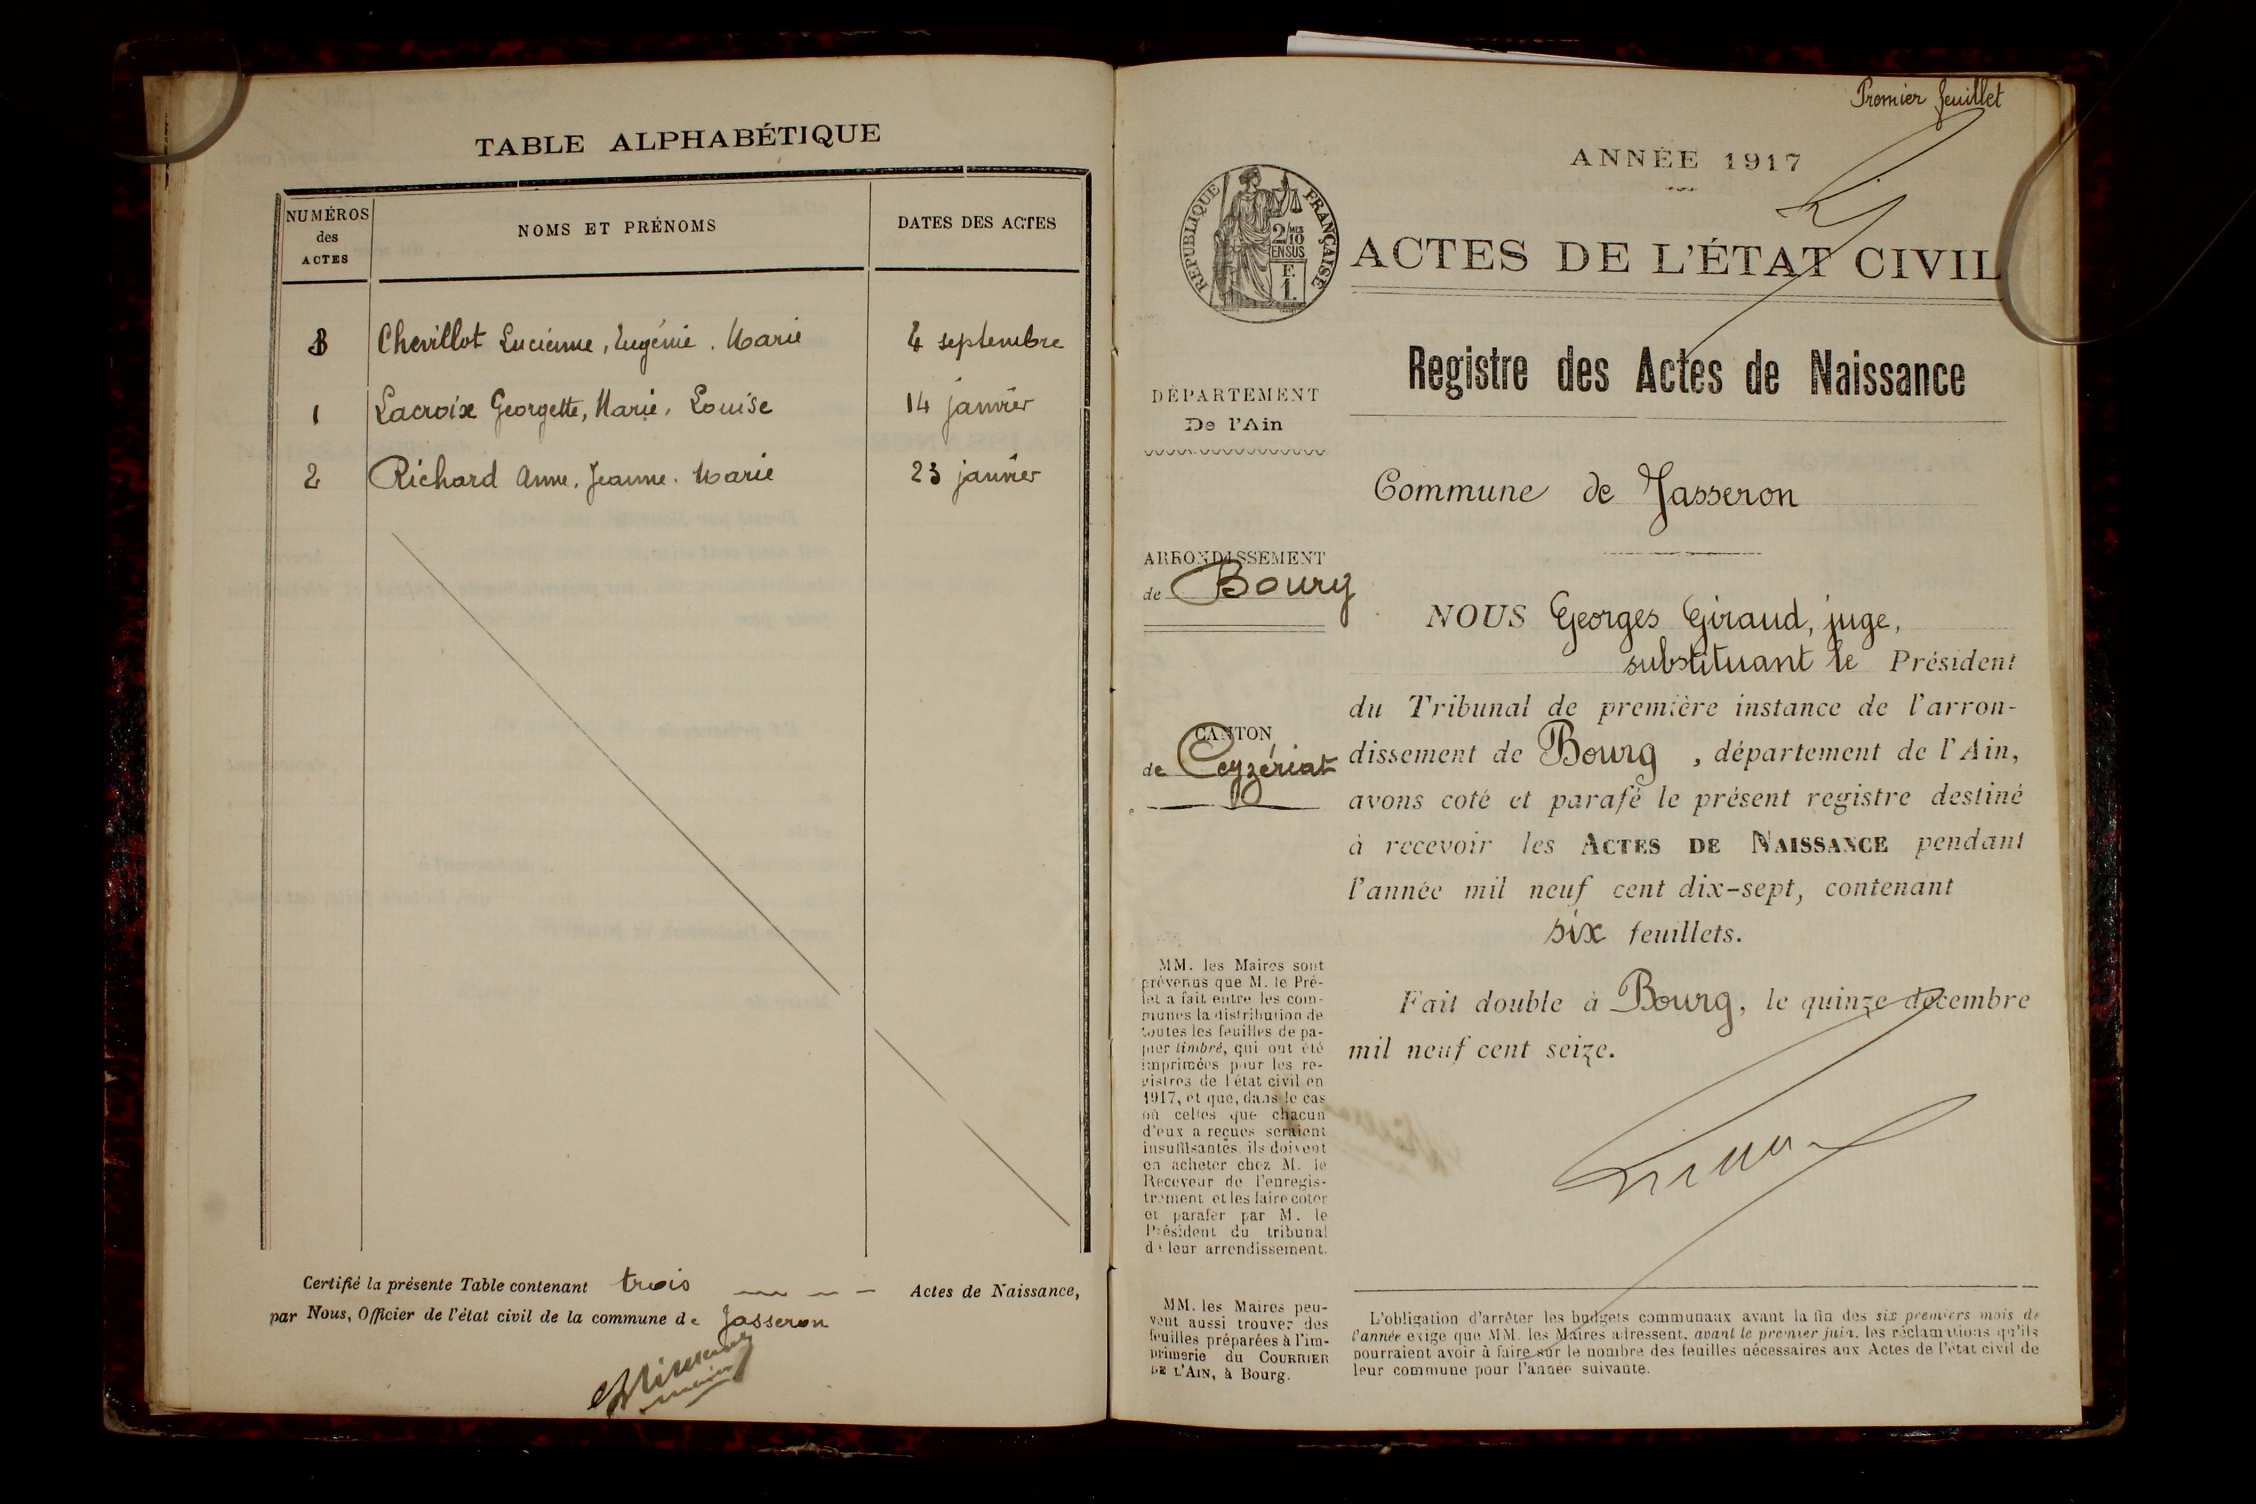 TABLE ALPHABÉTIQUE
NUMÉROS
des
ACTES
NOMS ET PRÉNOMS
DATES DES ACTES
3 Chevillot Lucienne, Eugénie. Marie 4 septembre
1 Lacroix Georgette, Marie, Louise 14 janvier
2 Richard Anne. Jeanne. Marie 23 janvier
Certifié la présente Table contenant trois Actes de Naissance,
par Nous, Officier de l'état civil de la commune de Jasseron
Premier feuillet
ANNÉE 1917
RÉPUBLIQUE FRANÇAISE
2/10 MES
EN SUS
F.
1.
ACTES DE L'ÉTAT CIVIL
Registre des Actes de Naissance
DÉPARTEMENT
De l'Ain
Commune de Jasseron
ARRONDISSEMENT
de Bourg
CANTON
de Ceyzériat
NOUS Georges Giraud, juge,
substituant le Président
du Tribunal de première instance de l'arron-
dissement de Bourg, département de l'Ain,
avons coté et parafé le présent registre destiné
à recevoir les ACTES DE NAISSANCE pendant
l'année mil neuf cent dix-sept, contenant
six feuillets.
Fait double à Bourg, le quinze décembre
mil neuf cent seize.
MM. les Maires sont
prévenus que M. le Pré-
fet a fait entre les com-
munes la distribution de
toutes les feuilles de pa-
pier timbré, qui ont été
imprimées pour les re-
gistres de l'état civil en
1917, et que, dans le cas
où celles que chacun
d'eux a reçues seraient
insuffisantes, ils doivent
en acheter chez M. le
Receveur de l'enregis-
trement et les faire coter
et parafer par M. le
Président du tribunal
de leur arrondissement.
MM. les Maires peu-
vent aussi trouver des
feuilles préparées à l'im-
primerie du COURRIER
DE L'AIN, à Bourg.
L'obligation d'arrêter les budgets communaux avant la fin des six premiers mois de
l'année exige que MM. les Maires adressent, avant le premier juin, les réclamations qu'ils
pourraient avoir à faire sur le nombre des feuilles nécessaires aux Actes de l'état civil de
leur commune pour l'année suivante.